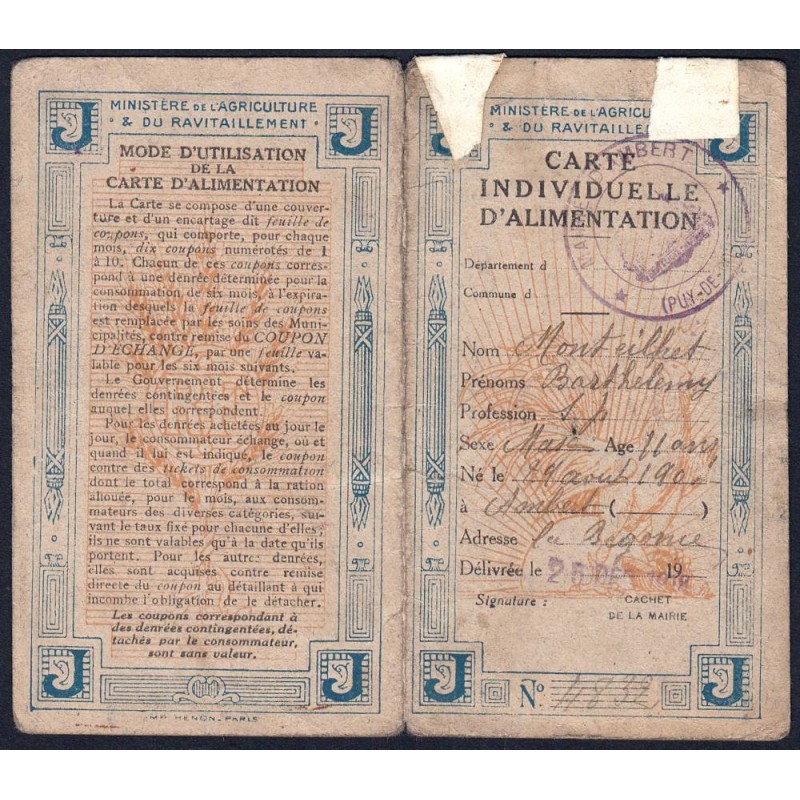 J J
MINISTÈRE DE L'AGRICULTURE
& DU RAVITAILLEMENT
MODE D'UTILISATION
DE LA
CARTE D'ALIMENTATION
La Carte se compose d'une couver-
ture et d'un encartage dit feuille de
coupons, qui comporte, pour chaque
mois, dix coupons numérotés de 1
à 10. Chacun de ces coupons corres-
pond à une denrée déterminée pour la
consommation de six mois, à l'expira-
tion desquels la feuille de coupons
est remplacée par les soins des Muni-
cipalités, contre remise du COUPON
D'ÉCHANGE, par une feuille va-
lable pour les six mois suivants.
Le Gouvernement détermine les
denrées contingentées et le coupon
auquel elles correspondent.
Pour les denrées achetées au jour le
jour, le consommateur échange, où et
quand il lui est indiqué, le coupon
contre des tickets de consommation
dont le total correspond à la ration
allouée, pour le mois, aux consom-
mateurs des diverses catégories, sui-
vant le taux fixé pour chacune d'elles;
ils ne sont valables qu'à la date qu'ils
portent. Pour les autres denrées,
elles sont acquises contre remise
directe du coupon au détaillant à qui
incombe l'obligation de le détacher.
Les coupons correspondant à
des denrées contingentées, dé-
tachés par le consommateur,
sont sans valeur.
J J
IMP. HENON-PARIS
J J
MINISTÈRE DE L'AGRICU
& DU RAVITAILLE
CARTE
INDIVIDUELLE
D'ALIMENTATION
MBERT
(PUY-DE-
Département d
Commune d
Nom Monteilhet
Prénoms Barthélemy
Profession S.p
Sexe Mas Age 11 ans
Né le août 190
à Ambert ( )
Adresse la
Délivrée le 25 1918 19
Signature :
CACHET
DE LA MAIRIE
J J
No 4832